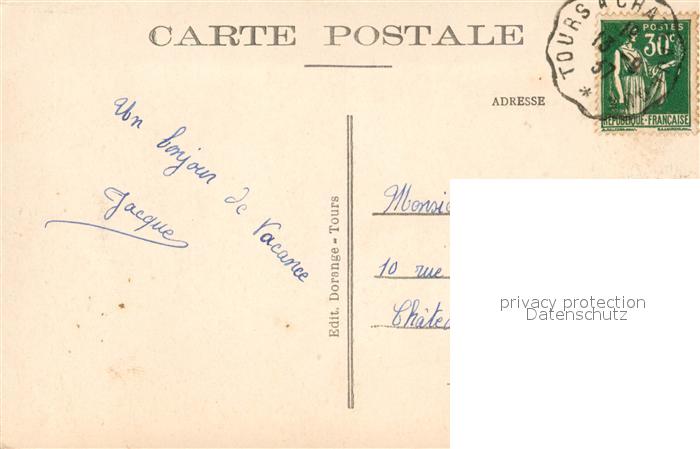 CARTE POSTALE
TOURS A CHA
18
13 - 9
37
*
POSTES
30c
RÉPUBLIQUE-FRANÇAISE
ADRESSE
Un bonjour de Vacance
Jacque
Edit. Dorange - Tours
Monsie
10 rue
Châte
privacy protection
Datenschutz